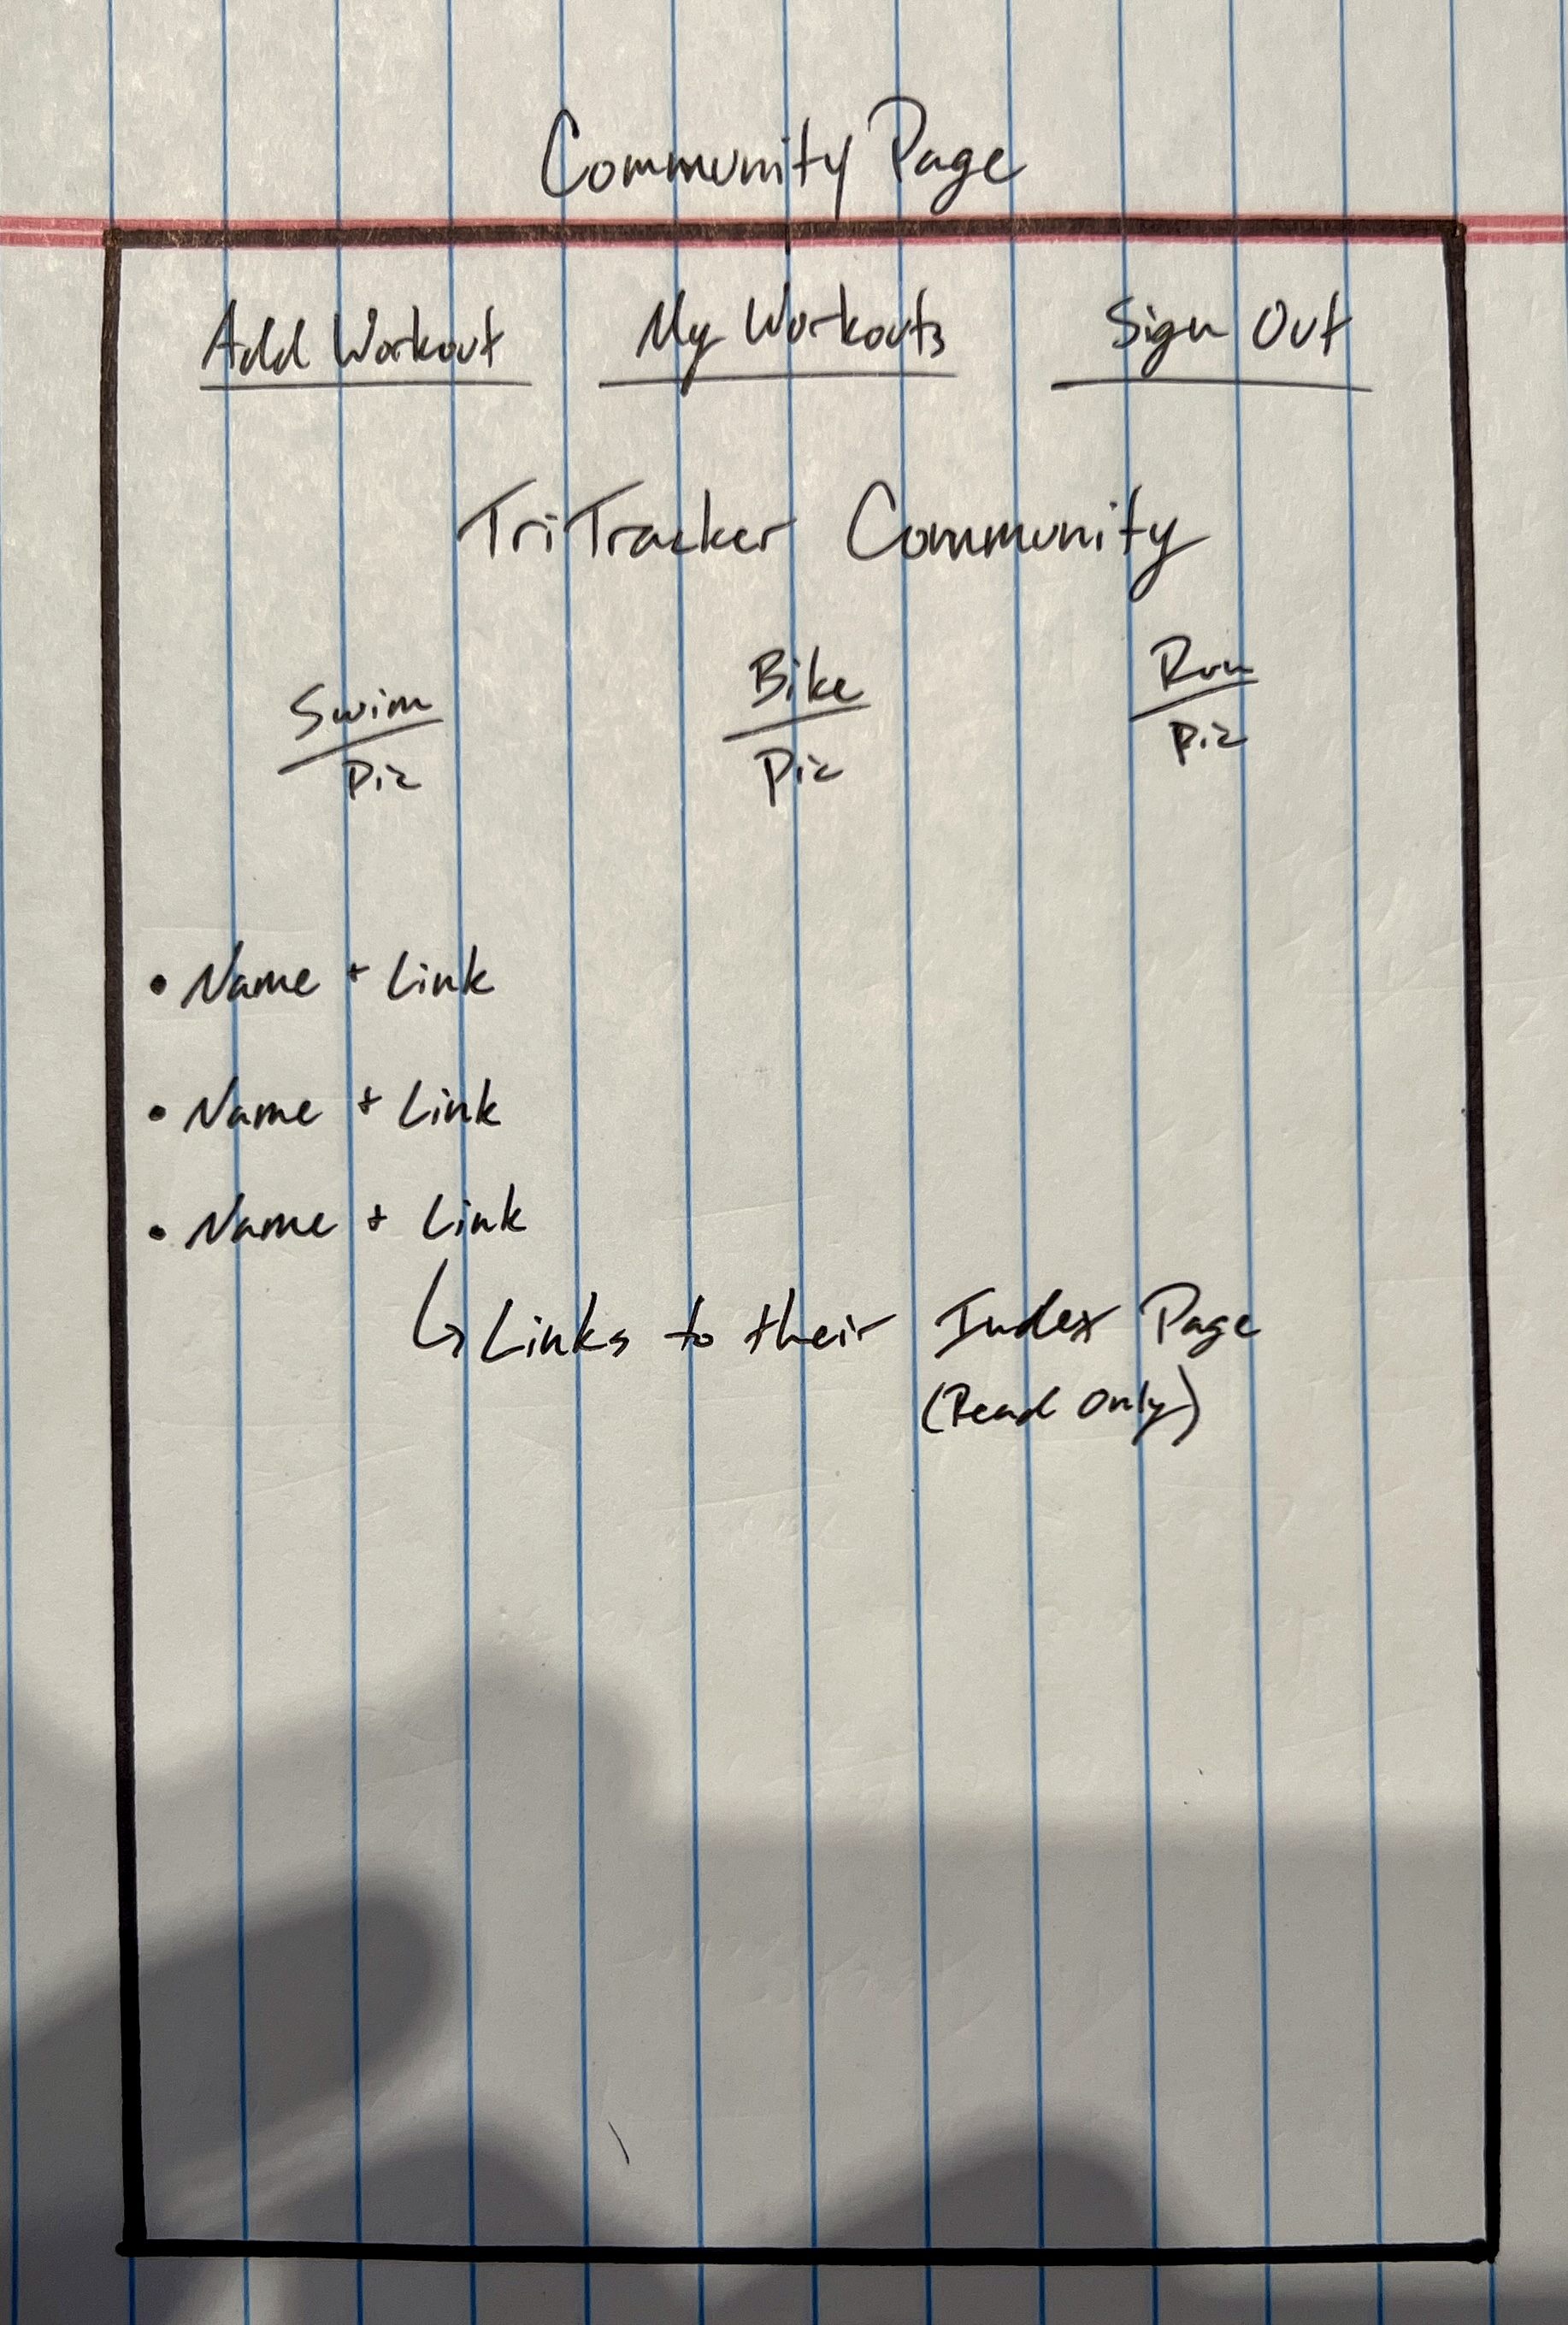 Community Page
Add Workout My Workouts Sign Out
TriTracker Community
Swim Bike Run
Pic Pic Pic
• Name + Link
• Name + Link
• Name + Link
↳ Links to their Index Page
(Read Only)